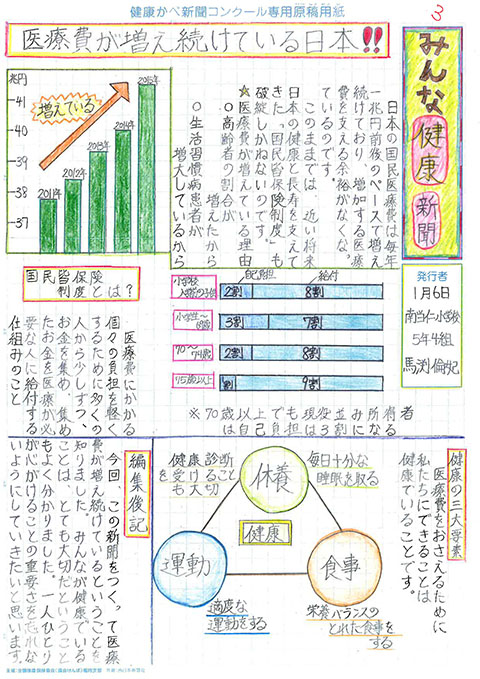 健康かべ新聞コンクール専用原稿用紙
3
みんな健康新聞
発行者
1月6日
南当仁小学校
5年4組
医療費が増え続けている日本!!
兆円
41
40
39
38
37
増えている
2011年
2012年
2013年
2014年
2015年
日本の国民医療費は毎年
一兆円前後のペースで増え
続けており、増加する医療
費を支える余裕がなくな
ているのです。
このままでは、近い将来
日本の健康と長寿を支えて
きた「国民皆保険制度」も
破綻しかねないのです。
☆医療費が増えている理由
○高齢者の割合が
増えたから
○生活習慣病患者が
増大しているから
国民皆保険
制度とは?
医療費にかかる
個々の負担を軽く
するために多くの
人から少しずつ、
お金を集め、集め
たお金を医療が必
要な人に給付する
仕組みのこと
自己負担
給付
小学校
入学前の子供
2割
8割
小学生~
69歳
3割
7割
70~
74歳
2割
8割
75歳以上
1割
9割
※70歳以上でも現役並み所得者
は自己負担は3割になる
健康の三大要素
医療費をおさえるために
私たちにできることは
健康でいることです。
休養
毎日十分な
睡眠を取る
健康診断
を受けること
も大切
健康
運動
適度な
運動をする
食事
栄養バランスの
とれた食事を
する
編集後記
今回、この新聞をつくって医療
費が増え続けているということを
知りました。みんなが健康でいる
ことは、とても大切だということ
もよく分かりました。一人ひとり
が心がけることの重要さを忘れな
いようにしていきたいと思います。